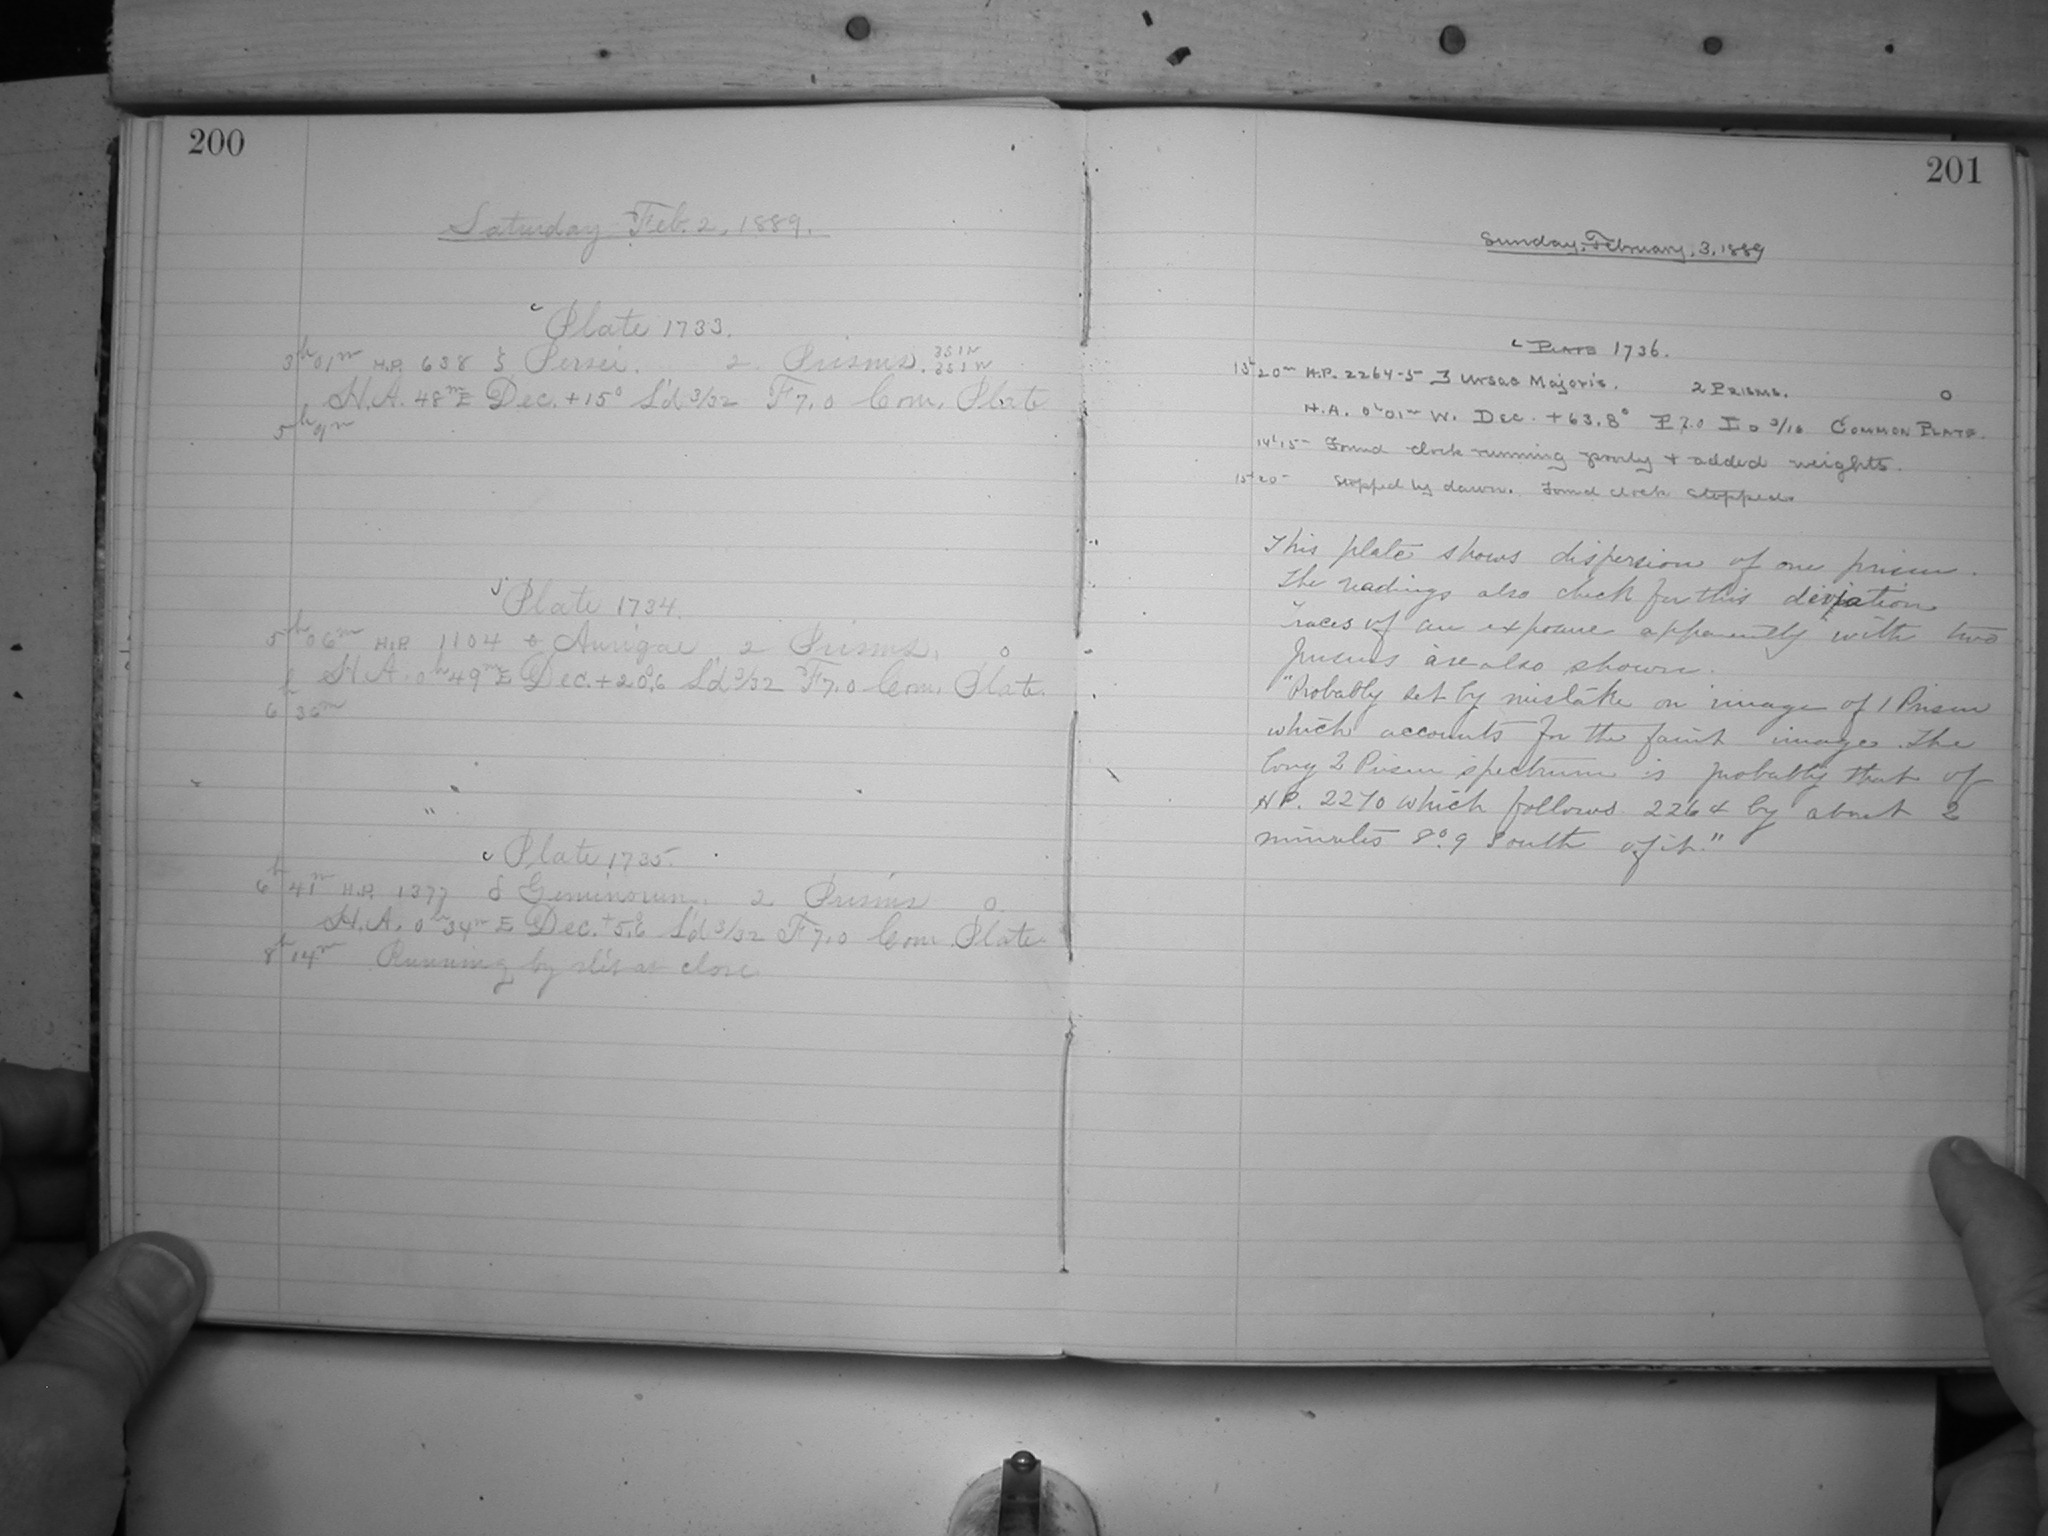 200
Saturday Feb. 2, 1889.
c Plate 1733.
3h 01m H.P. 638 ξ Persei. 2 Prisms.
H.A. 48m E Dec. +15° L'd 3/32 F 7.0 Com. Plate
5h 9m
Plate 1734.
5h 06m H.P. 1104 θ Aurigae 2 Prisms. 0
H.A. 0h 49m E Dec. +20°.6 L'd 3/32 F 7.0 Com. Plate.
6h 36m
c Plate 1735.
6h 41m H.P. 1377 δ Geminorum. 2 Prisms 0
H.A. 0h 34m E Dec. +5°.6 L'd 3/32 F 7.0 Com. Plate.
8h 14m Running by slit at close
201
Sunday, February, 3, 1889
c Plate 1736.
13h 20m H.P. 2264-5 ζ Ursae Majoris. 2 Prisms. 0
H.A. 0h 01m W. Dec. +63.8° F 7.0 3/16 Common Plate.
14h 15m Found clock running poorly + added weights.
15h 20m Stopped by dawn. Found clock stopped.
This plate shows dispersion of one prism.
The readings also check for this deviation
Traces of an exposure apparently with two
prisms are also shown.
"Probably set by mistake on image of 1 Prism
which accounts for the faint image. The
long 2 Prism spectrum is probably that of
H.P. 2270 which follows 2264 by about 2
minutes 8°.9 South of it."